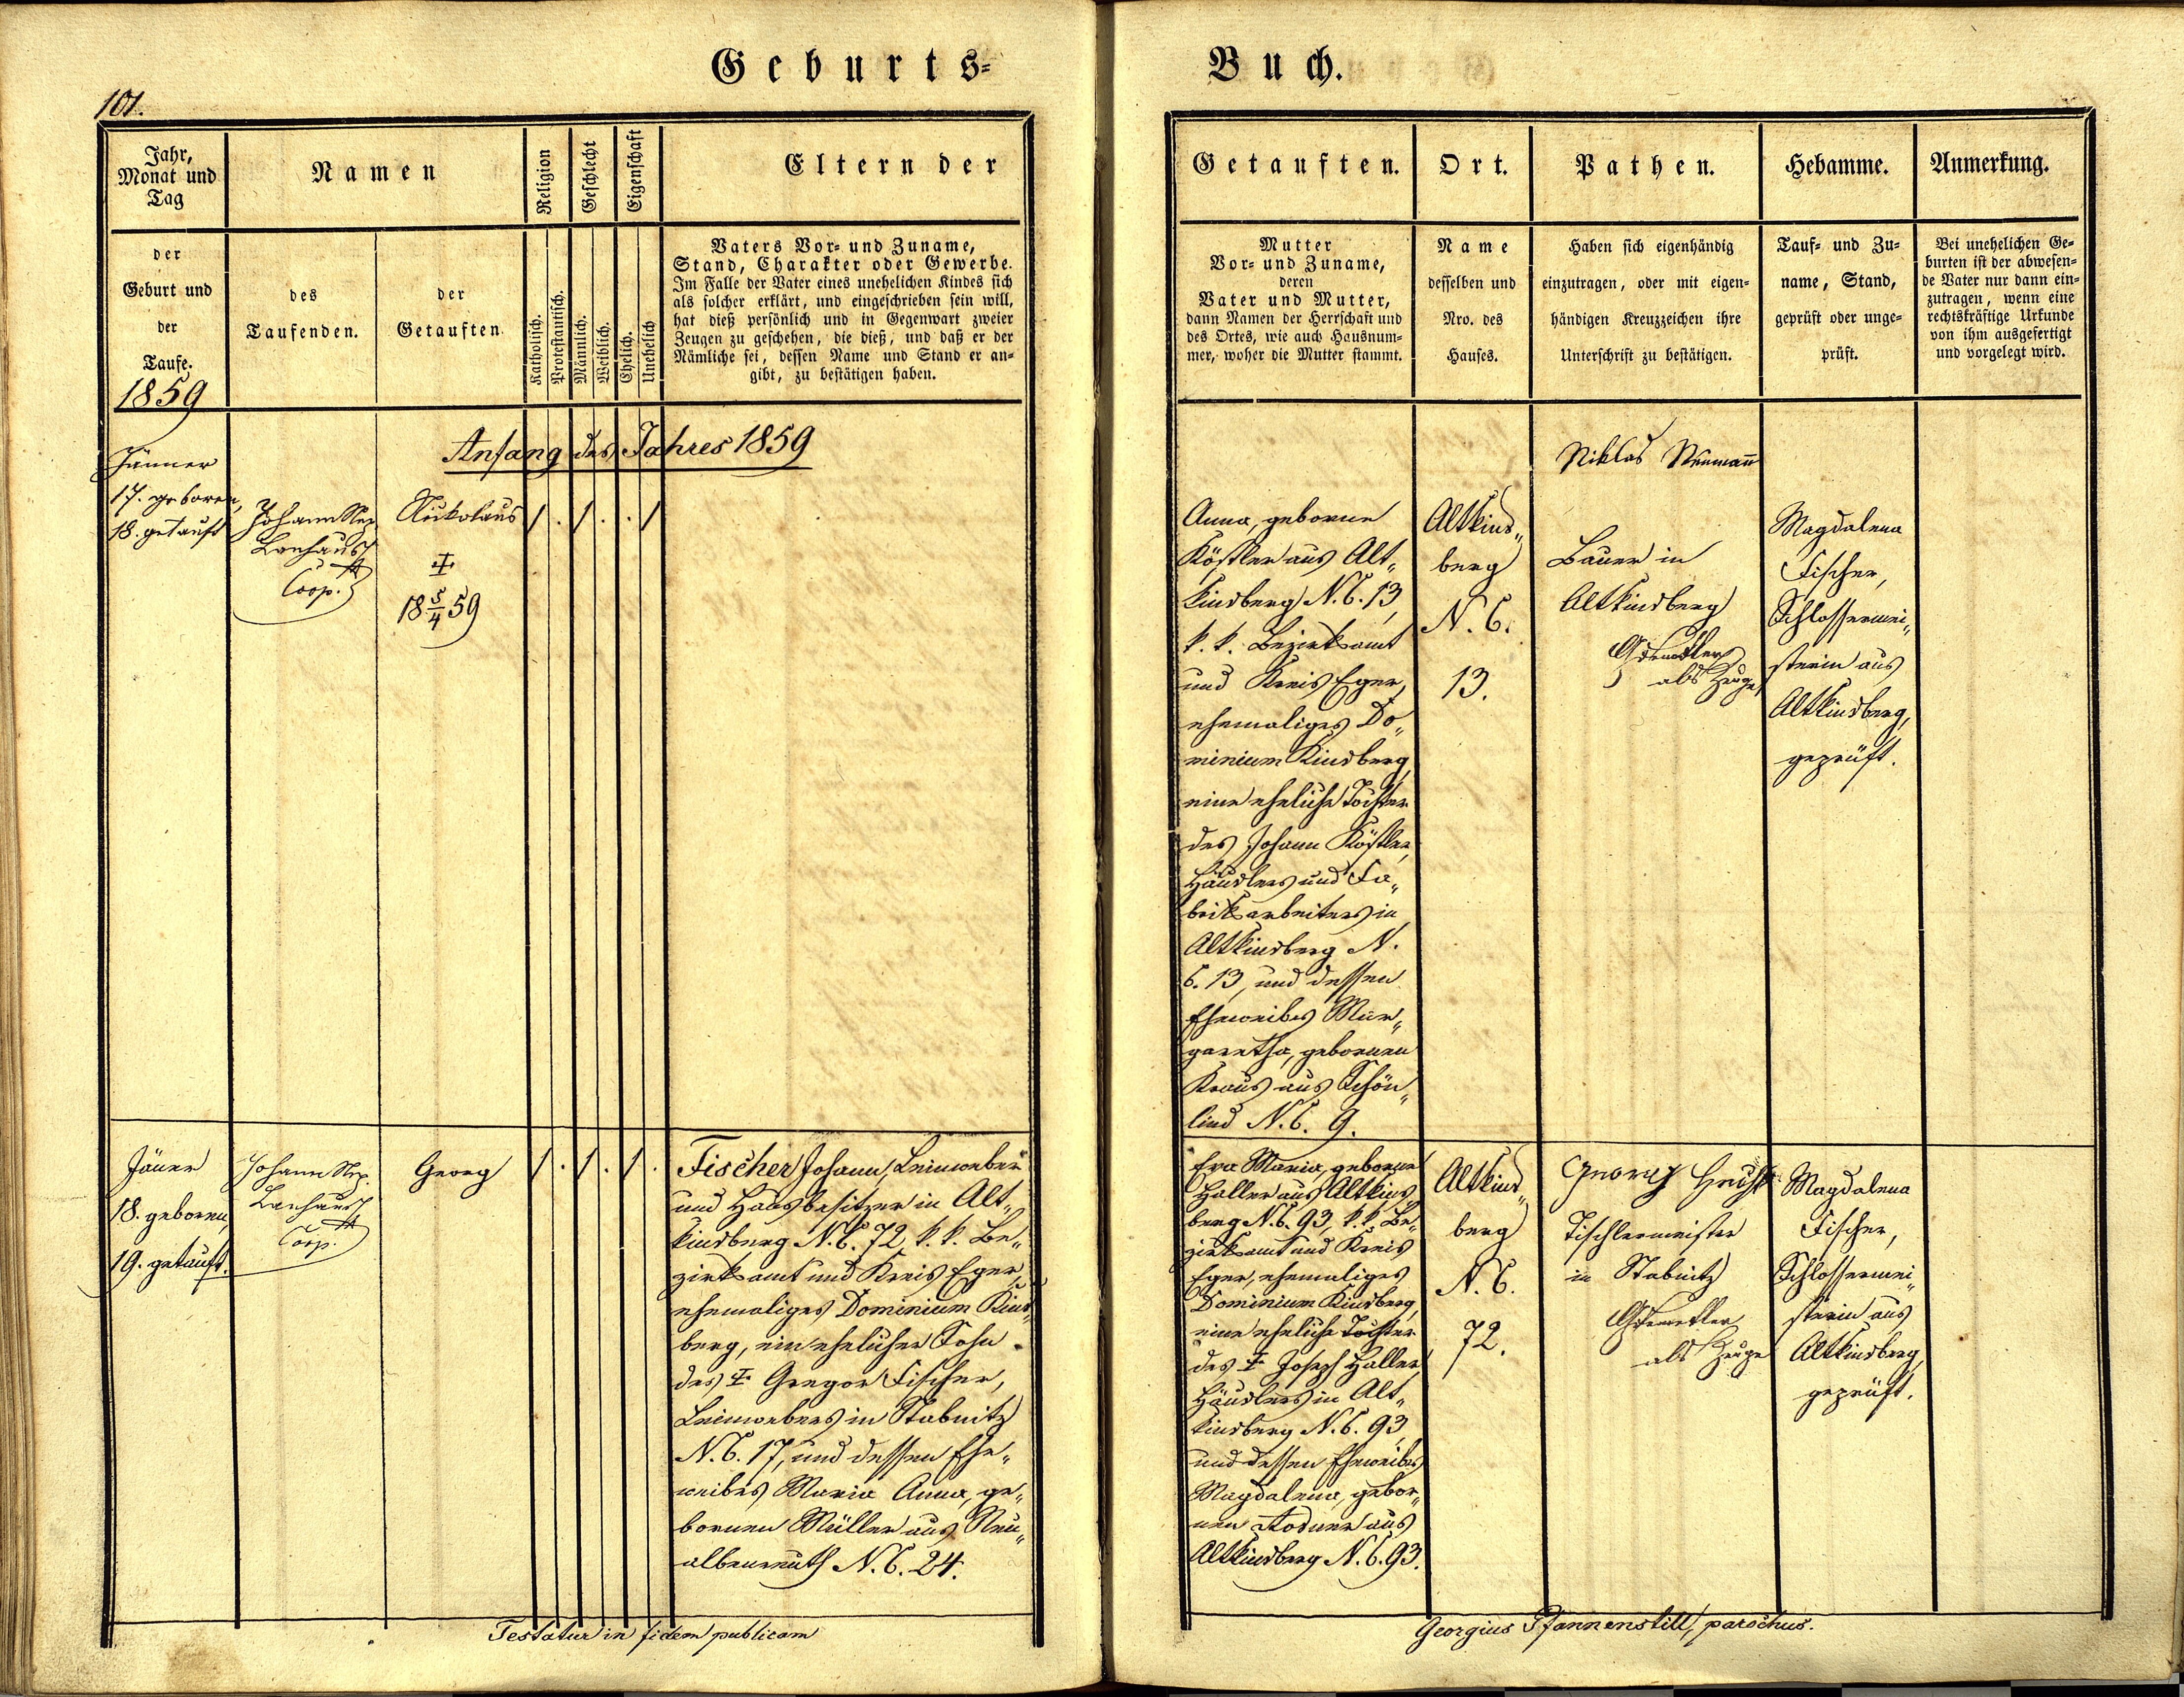 Geburts-
Buch.
101.
Jahr,
Monat und
Tag
Namen
Religion
Geschlecht
Eigenschaft
Eltern der
der
Geburt und
der
Taufe.
1859
des
Taufenden.
der
Getauften
Katholisch.
Protestantisch.
Männlich.
Weiblich.
Ehelich.
Unehelich
Vaters Vor- und Zuname,
Stand, Charakter oder Gewerbe.
Im Falle der Vater eines unehelichen Kindes sich
als solcher erklärt, und eingeschrieben sein will,
hat dieß persönlich und in Gegenwart zweier
Zeugen zu geschehen, die dieß, und daß er der
Nämliche sei, dessen Name und Stand er an-
gibt, zu bestätigen haben.
Anfang des Jahres 1859
Jänner
17. geboren,
18. getauft
Johann Nep.
Coop.
Nikolaus
18 5/4 59
Jäner
18. geboren,
19. getauft.
Johann Nep.
Coop.
Georg
Fischer Johann, Leinweber
und Hausbesitzer in Alt„
kinsberg N.C. 72, k.k. Be„
zirksamt und Kreis Eger,
ehemaliges Dominium Kins„
berg, ein ehelicher Sohn
des ☩ Gregor Fischer,
Leinwebers in Stabnitz
N.C. 17, und dessen Ehe„
weibes Maria Anna, ge„
bornen Müller aus Neu„
albenreuth N.C. 24.
Testatur in fidem publicam
Getauften.
Ort.
Pathen.
Hebamme.
Anmerkung.
Mutter
Vor- und Zuname,
deren
Vater und Mutter,
dann Namen der Herrschaft und
des Ortes, wie auch Hausnum-
mer, woher die Mutter stammt.
Name
desselben und
Nro. des
Hauses.
Haben sich eigenhändig
einzutragen, oder mit eigen-
händigen Kreuzzeichen ihre
Unterschrift zu bestätigen.
Tauf- und Zu-
name, Stand,
geprüft oder unge-
prüft.
Bei unehelichen Ge-
burten ist der abwesen-
de Vater nur dann ein-
zutragen, wenn eine
rechtskräftige Urkunde
von ihm ausgefertigt
und vorgelegt wird.
Anna, geborne
Köstler aus Alt„
kinsberg N.C. 13,
k.k. Bezirksamt
und Kreis Eger,
ehemaliges Do„
minium Kinsberg,
eine eheliche Tochter
des Johann Köstler,
Häuslers und Fa„
briksarbeiters in
Altkinsberg N.
C. 13, und dessen
Eheweibes Mar„
garetha, gebornen
Kraus aus Schön„
lind N.C. 9.
Altkins„
berg
N.C.
13.
Niklas Neumann
Bauer in
Altkinsberg
als Zeuge
Magdalena
Fischer,
Schlossermei„
sterin aus
Altkinsberg,
geprüft.
Eva Maria, geborne
Haller aus Altkins„
berg N.C. 93, k.k. Be„
zirksamt und Kreis
Eger, ehemaliges
Dominium Kinsberg,
eine eheliche Tochter
des ☩ Joseph Haller,
Häuslers in Alt„
kinsberg N.C. 93,
und dessen Eheweibes
Magdalena, gebor„
nen aus
Altkinsberg N.C. 93.
Altkins„
berg
N.C.
72.
Georg
Tischlermeister
in Stabnitz
als Zeuge
Magdalena
Fischer,
Schlossermei„
sterin aus
Altkinsberg,
geprüft.
Georgius Pfannenstill, parochus.